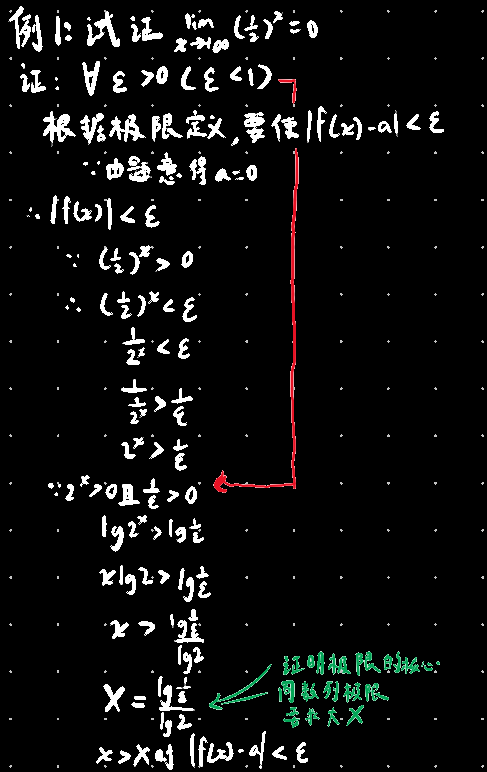 例1: 试证 lim x→+∞ (1/2)^x=0
证: ∀ε>0 (ε<1)
根据极限定义,要使|f(x)-a|<ε
∵由题意得a=0
∴|f(x)|<ε
∵ (1/2)^x>0
∴ (1/2)^x<ε
1/2^x<ε
1/(1/2^x)>1/ε
2^x>1/ε
∵2^x>0且1/ε>0
lg2^x>lg1/ε
xlg2>lg1/ε
x>lg1/ε/lg2
X=lg1/ε/lg2
证明极限的核心
同数列极限
寻求大X
x>X时 |f(x)-a|<ε